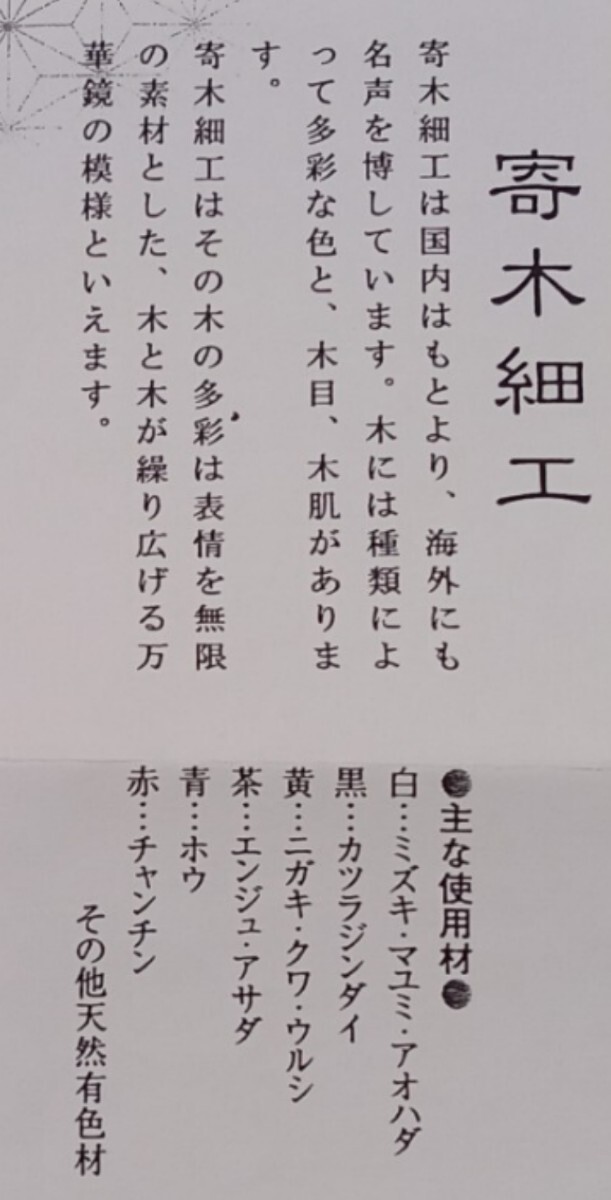 寄木細工
寄木細工は国内はもとより、海外にも
名声を博しています。木には種類によ
って多彩な色と、木目、木肌がありま
す。
寄木細工はその木の多彩は表情を無限
の素材とした、木と木が繰り広げる万
華鏡の模様といえます。
●主な使用材●
白…ミズキ・マユミ・アオハダ
黒…カツラジンダイ
黄…ニガキ・クワ・ウルシ
茶…エンジュ・アサダ
青…ホウ
赤…チャンチン
その他天然有色材